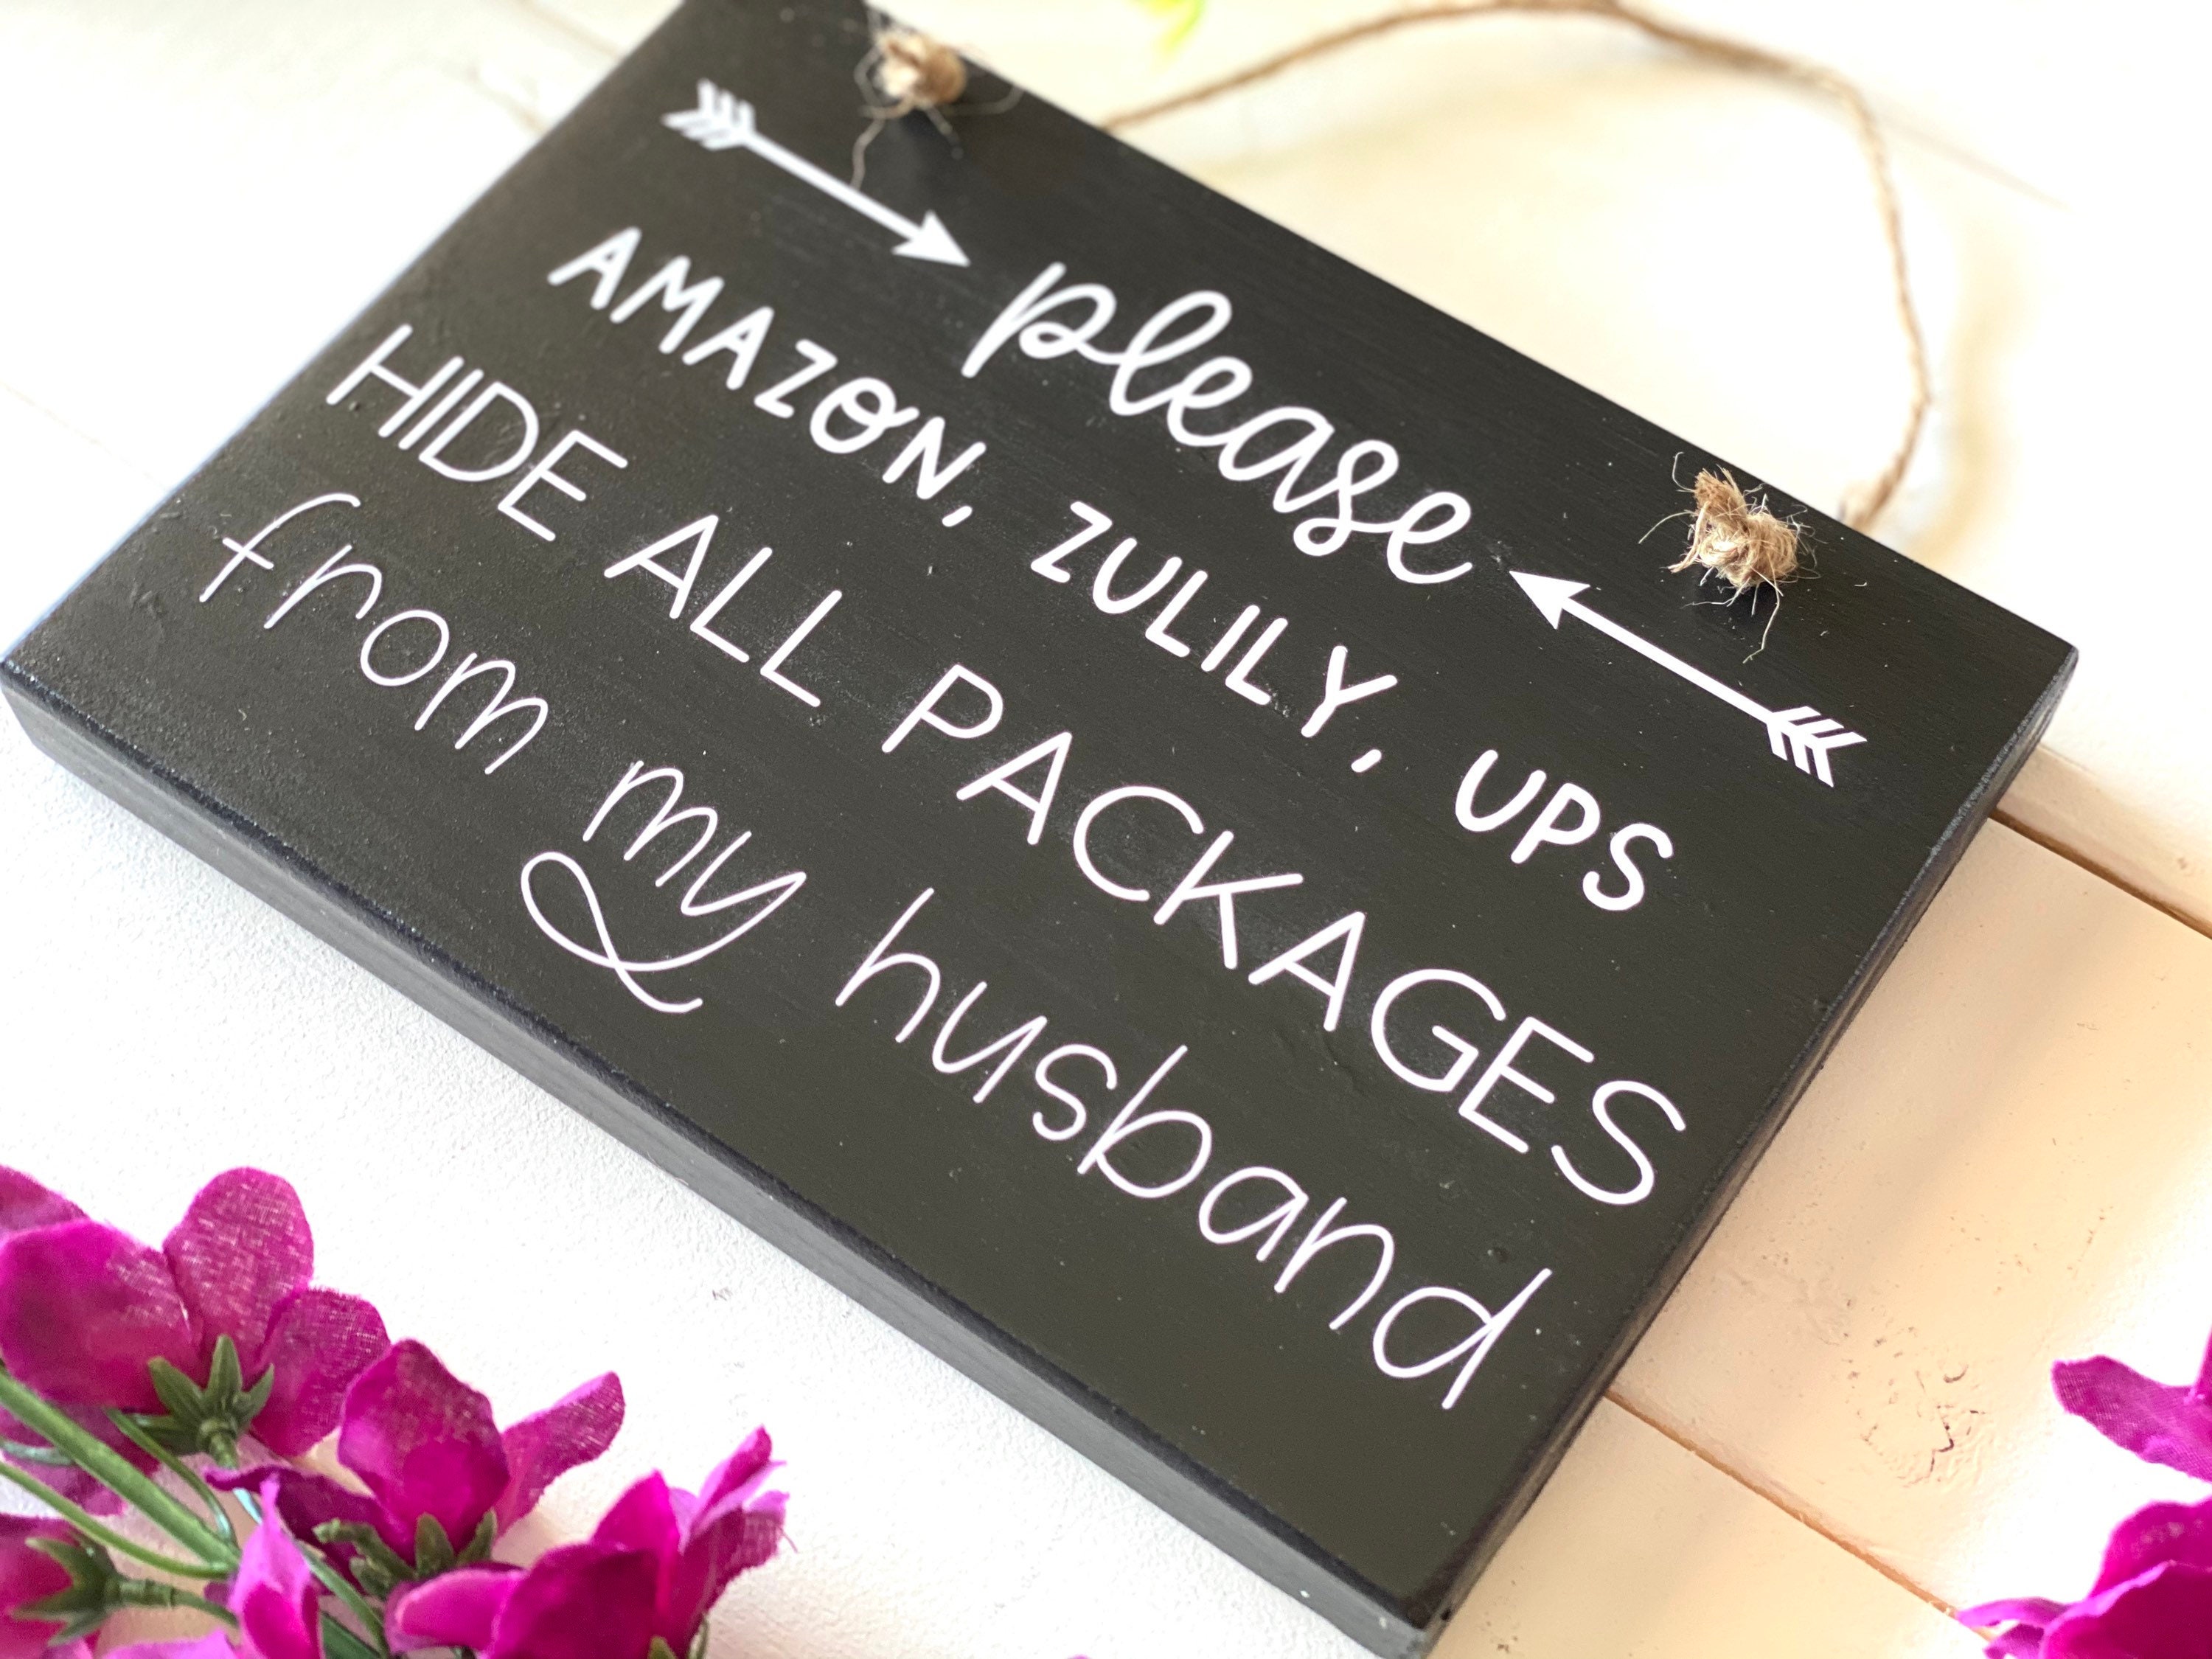 please
AMAZON, ZULILY, UPS
HIDE ALL PACKAGES
from my husband